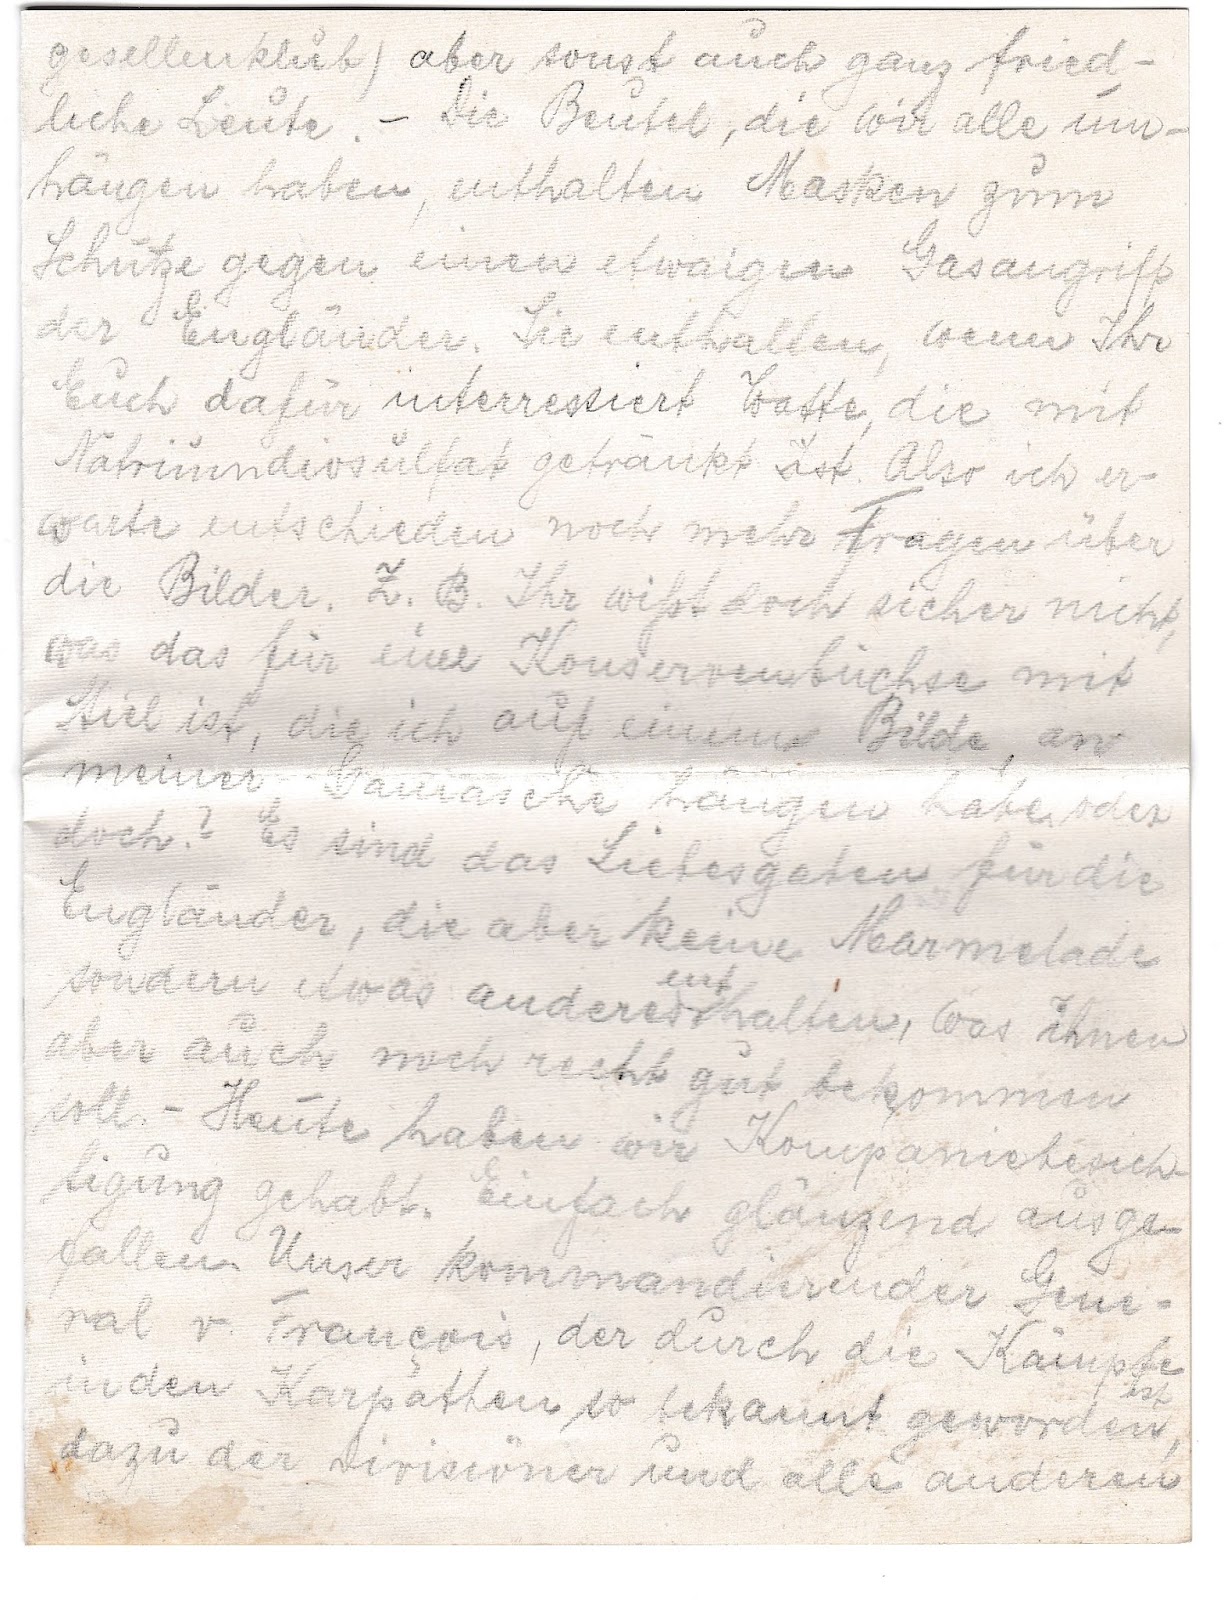 gesellenklub) aber sonst auch ganz fried-
liche Leute. - Die Beutel, die wir alle um-
hängen haben, enthalten Masken zum
Schutze gegen einen etwaigen Gasangriff
der Engländer. Sie enthalten, wenn Ihr
Euch dafür interressiert Watte, die mit
Natriumdiosulfat getränkt ist. Also ich er-
warte entschieden noch mehr Fragen über
die Bilder. Z. B. Ihr wißt doch sicher nicht,
was das für eine Konservenbüchse mit
Stiel ist, die ich auf einem Bilde, an
meiner Gamasche hängen habe, oder
doch? Es sind das Liebesgaben für die
Engländer, die aber keine Marmelade
sondern etwas anderes enthalten, was ihnen
aber auch noch recht gut bekommen
soll. - Heute haben wir Kompaniebesich-
tigung gehabt. Einfach glänzend ausge-
fallen. Unser kommandierender Gene-
ral v. François, der durch die Kämpfe
in den Karpathen so bekannt geworden ist,
dazu der Divisiöner und alle anderen